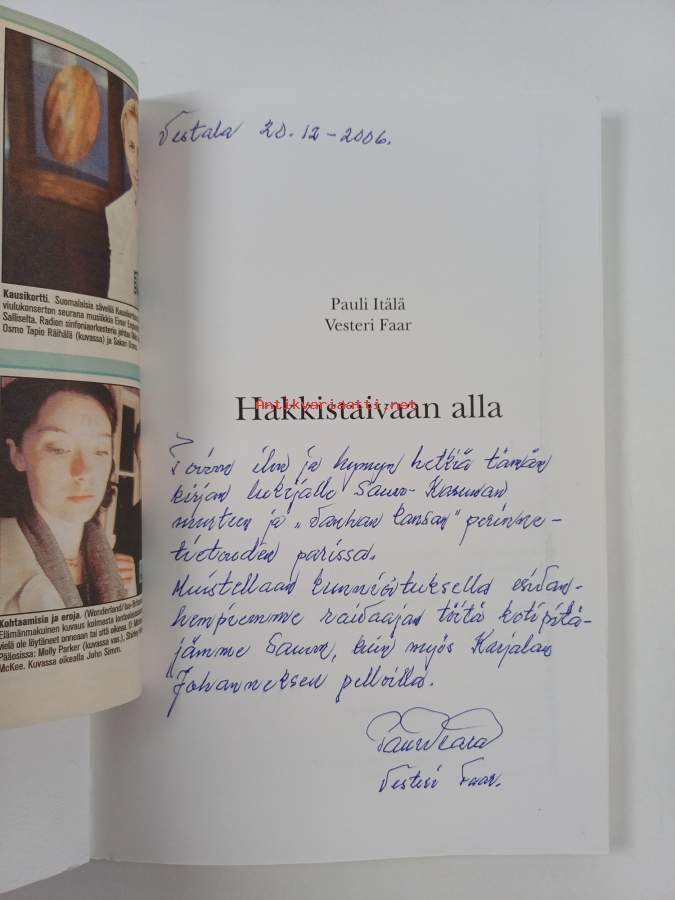 Kausikortti. Suomalaisia säveliä
viulukonserton seurana musiikkia Einar
Salliselta. Radion sinfoniaorkesteria
Osmo Tapio Räihälä (kuvassa) ja Sakari
Kohtaamisia ja eroja. (Wonderland/
Elämänmakuinen kuvaus kolmesta
vielä ole löytäneet onneaan tai sitä oikeaa.
Pääosissa: Molly Parker (kuvassa vas.), Shirley
McKee. Kuvassa oikealla John Simm.
Vestala 20.12-2006.
Pauli Itälä
Vesteri Faar
Hakkistaivaan alla
Antikvariaatti.net
Toivon ilon ja hymyn hetkiä tämän
kirjan lukijalle Sauvo-Karunan
murteen ja „Vanhan kansan" perinne-
tietouden parissa.
Muistellaan kunnioituksella esivan-
hempiemme raivaajan töitä kotipitä-
jämme Sauvon, kuin myös Karjalan
Johanneksen pelloilla.
Vesteri Faar.